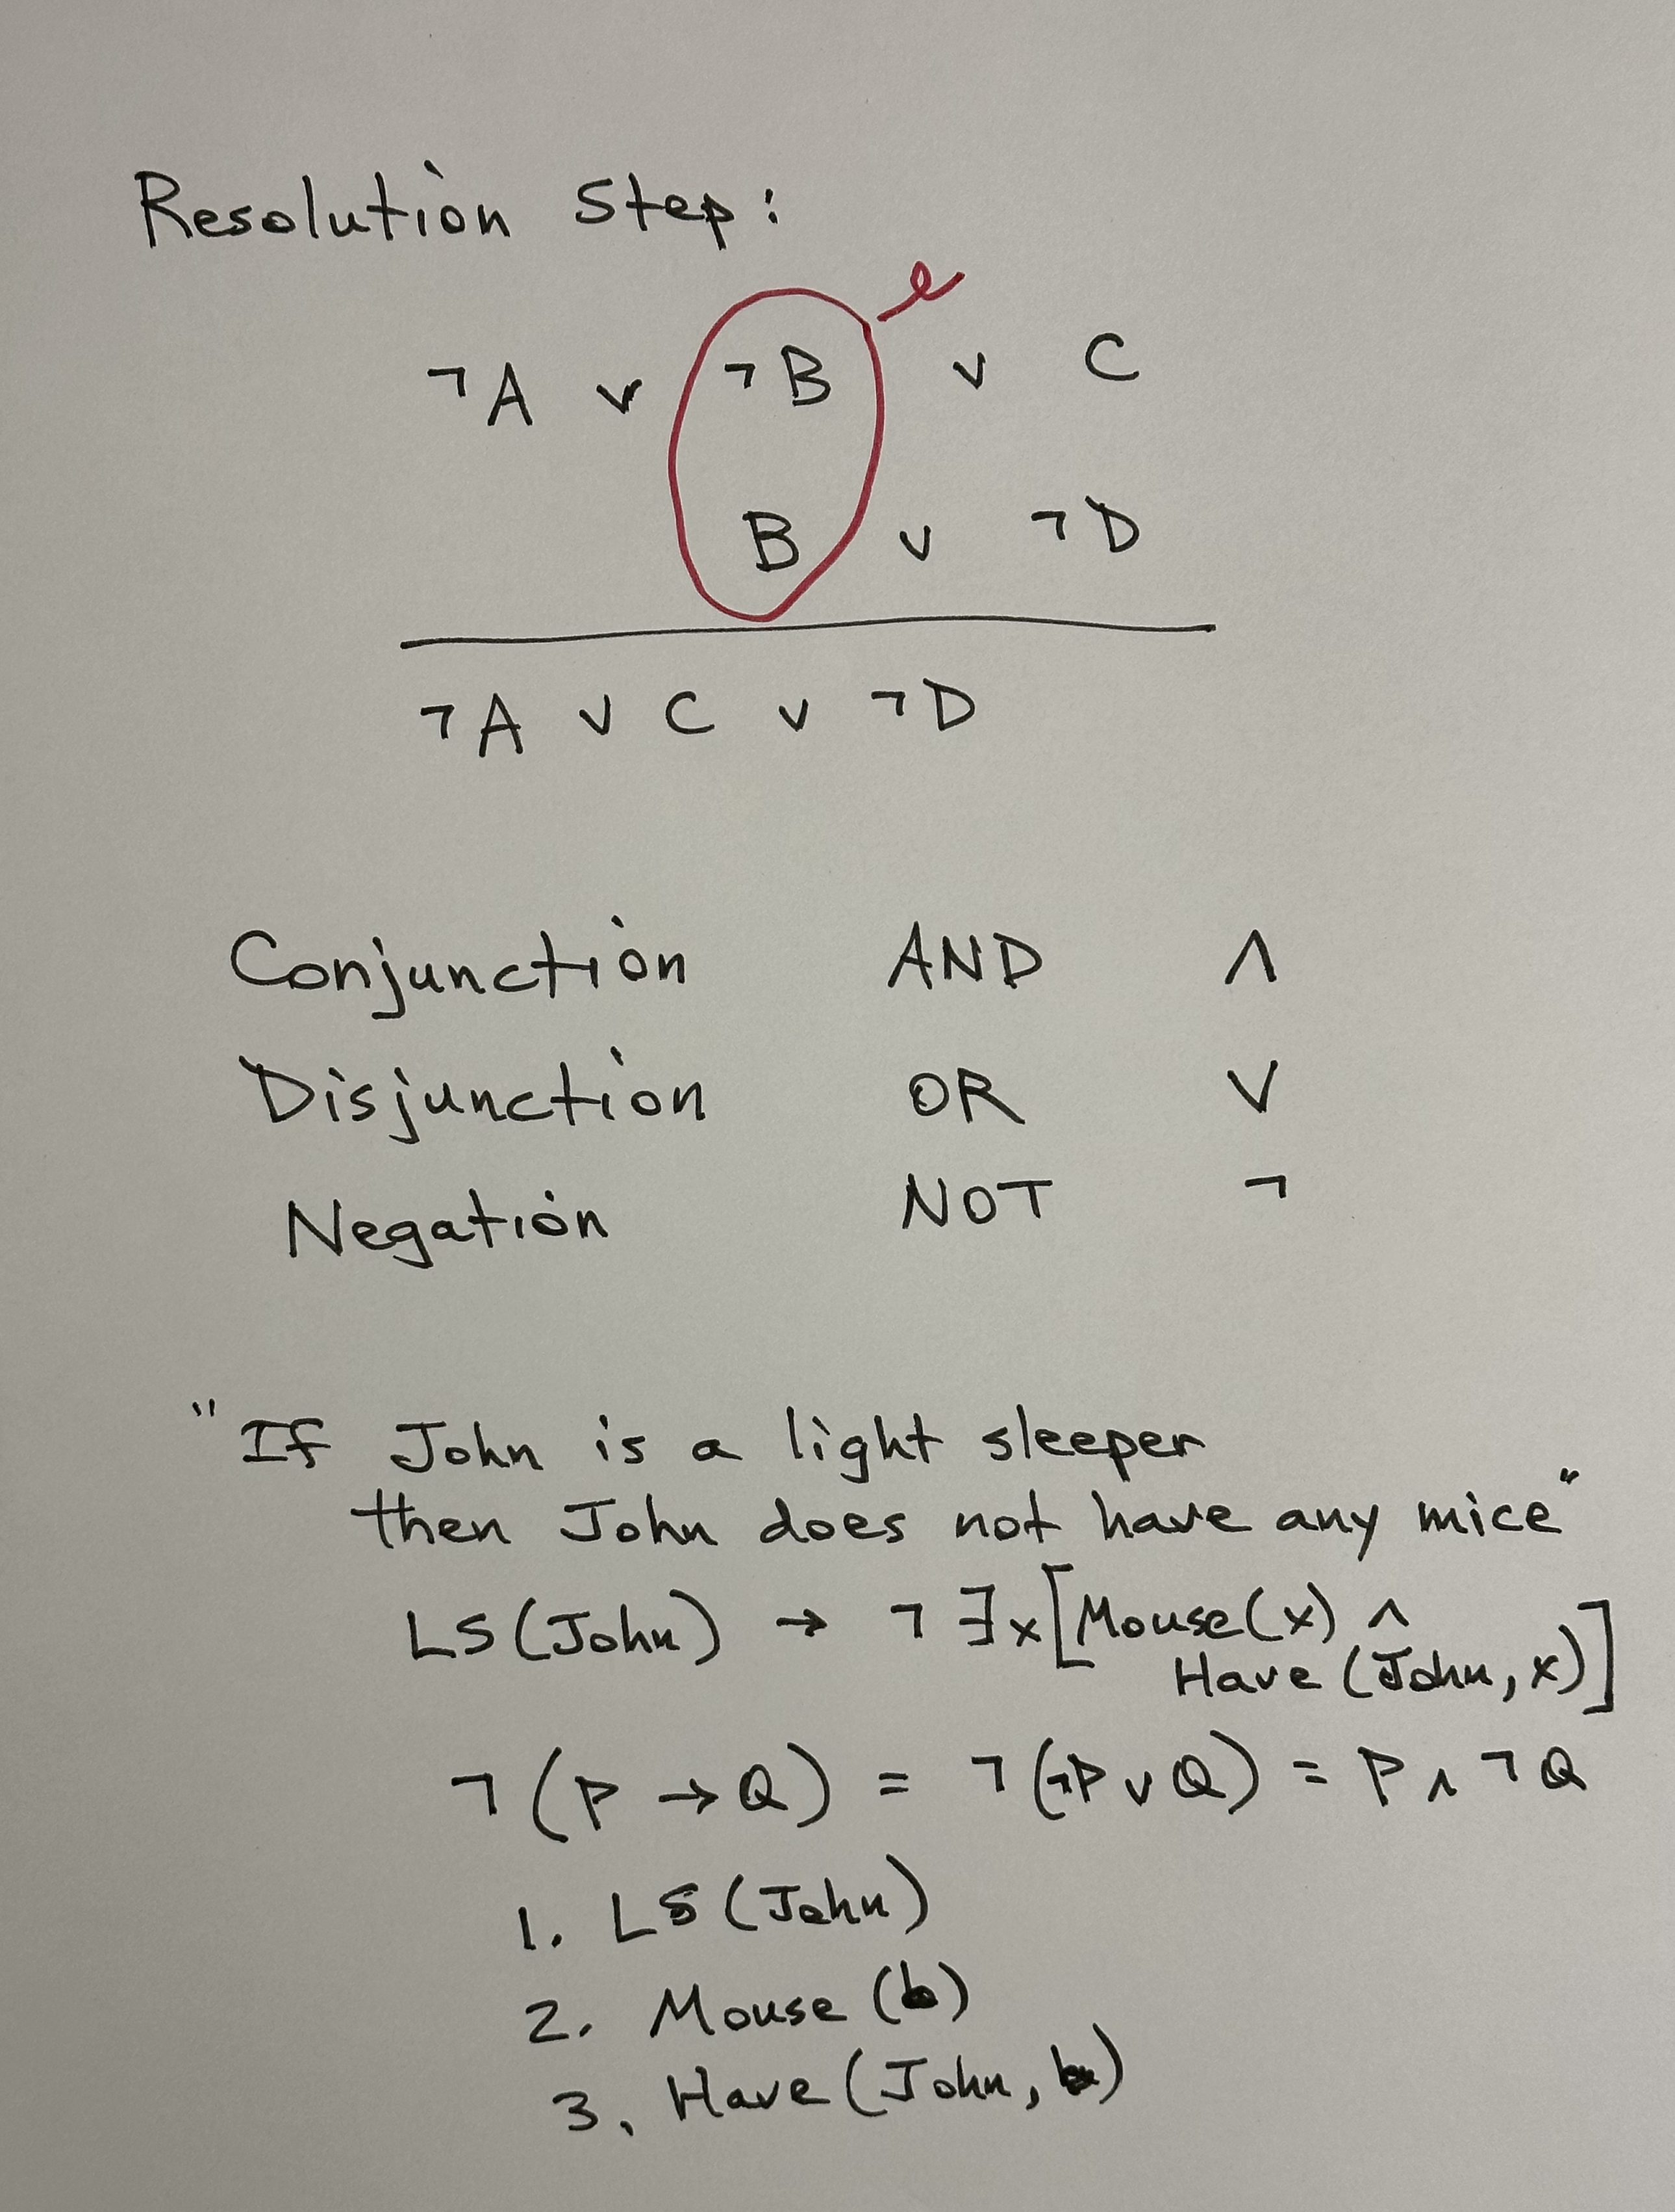 Resolution Step:
¬A ∨ ¬B ∨ C
B ∨ ¬D
¬A ∨ C ∨ ¬D
Conjunction AND ∧
Disjunction OR ∨
Negation NOT ¬
"If John is a light sleeper
then John does not have any mice"
LS(John) → ¬∃x[Mouse(x) ∧
Have(John,x)]
¬(P → Q) = ¬(¬P ∨ Q) = P ∧ ¬Q
1. LS(John)
2. Mouse(b)
3. Have(John, b)